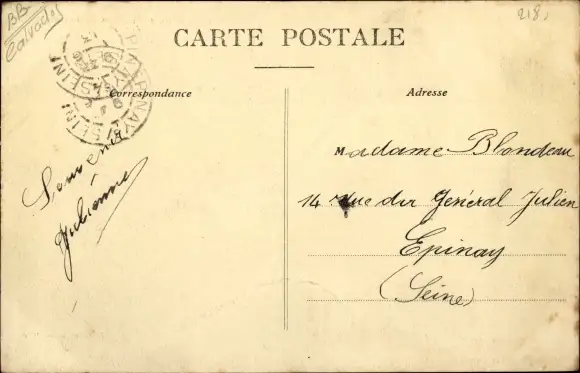 BB
Calvados
218,
CARTE POSTALE
Correspondance
Adresse
EPINAY S/SEINE
Souvenir
Julienne
Madame Blondeau
14 Rue du Général Julien
Epinay
(Seine)